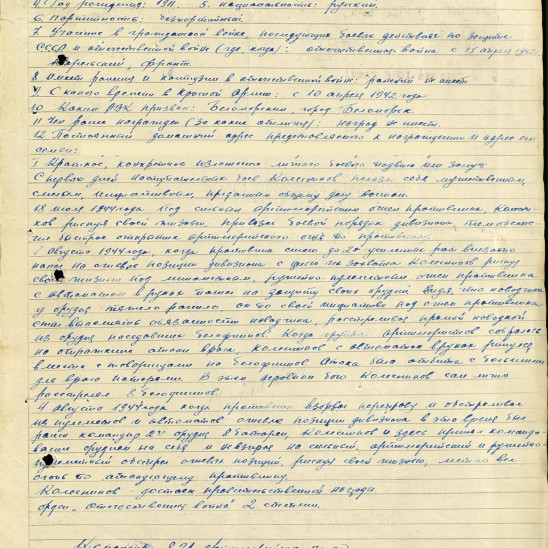 4. Год рождения: 1911. 5. национальность: русский.
6. Партийность: беспартийный
7. Участие в гражданской войне, последующих боевых действиях по защите
СССР и отечественной войне (где, когда): отечественная война с 15 апреля 1942
Карельский фронт.
8. Имеет ранения и контузии в отечественной войне: ранений не имеет
9. С какого времени в Красной Армии: с 10 апреля 1942 года
10. Каким РВК призван: Беломорским город Беломорск.
11. Чем ранее награжден (за какие отличия): наград не имеет.
12. Постоянный домашний адрес представляемого к награждению и адрес его
семьи:
I Краткое, конкретное изложение личного боевого подвига или заслуг:
С первых дней наступательных боев Колесников показал себя мужественным,
смелым, инициативным, преданным общему делу воином.
18 июля 1944 года под сильным артиллерийским огнем противника,
рискуя своей жизнью, боевой порядок дивизиона
быстрое открытие артиллерийского огня по противнику.
1 Августа 1944 года, когда противник силой до 2х усиленных рот внезапно
напал на огневые позиции дивизиона с целью их захвата Колесников рискуя
своей жизнью под минометным, ружейно пулеметным огнем противника
с автоматом в руках встал на защиту своих орудий. Видя, что наводчик
у орудия тяжело ранен, он по своей инициативе под огнем противника
стал выполнять обязанности наводчика, расстреливая прямой наводкой
из орудия наседавших белофиннов. Когда группа артиллеристов собралась
на отражение атаки врага, Колесников с автоматом в руках ринулся
вместе с товарищами на белофиннов. Атака была отбита с большими
для врага потерями. В этом неравном бою Колесников сам лично
расстрелял 8 белофиннов.
4 Августа 1944 года, когда противник взорвал переправу и обстреливал
из пулеметов и автоматов огневые позиции дивизиона в это время был
ранен командир 2го орудия 8 батареи, Колесников и здесь принял командование
орудием на себя и невзирая на сильный, артиллерийский и ружейно
пулеметный обстрел огневых позиций, рискуя своей жизнью, метко вел
огонь по атакующему противнику.
Колесников достоин правительственной награды
орден "Отечественная война" 2 степени.